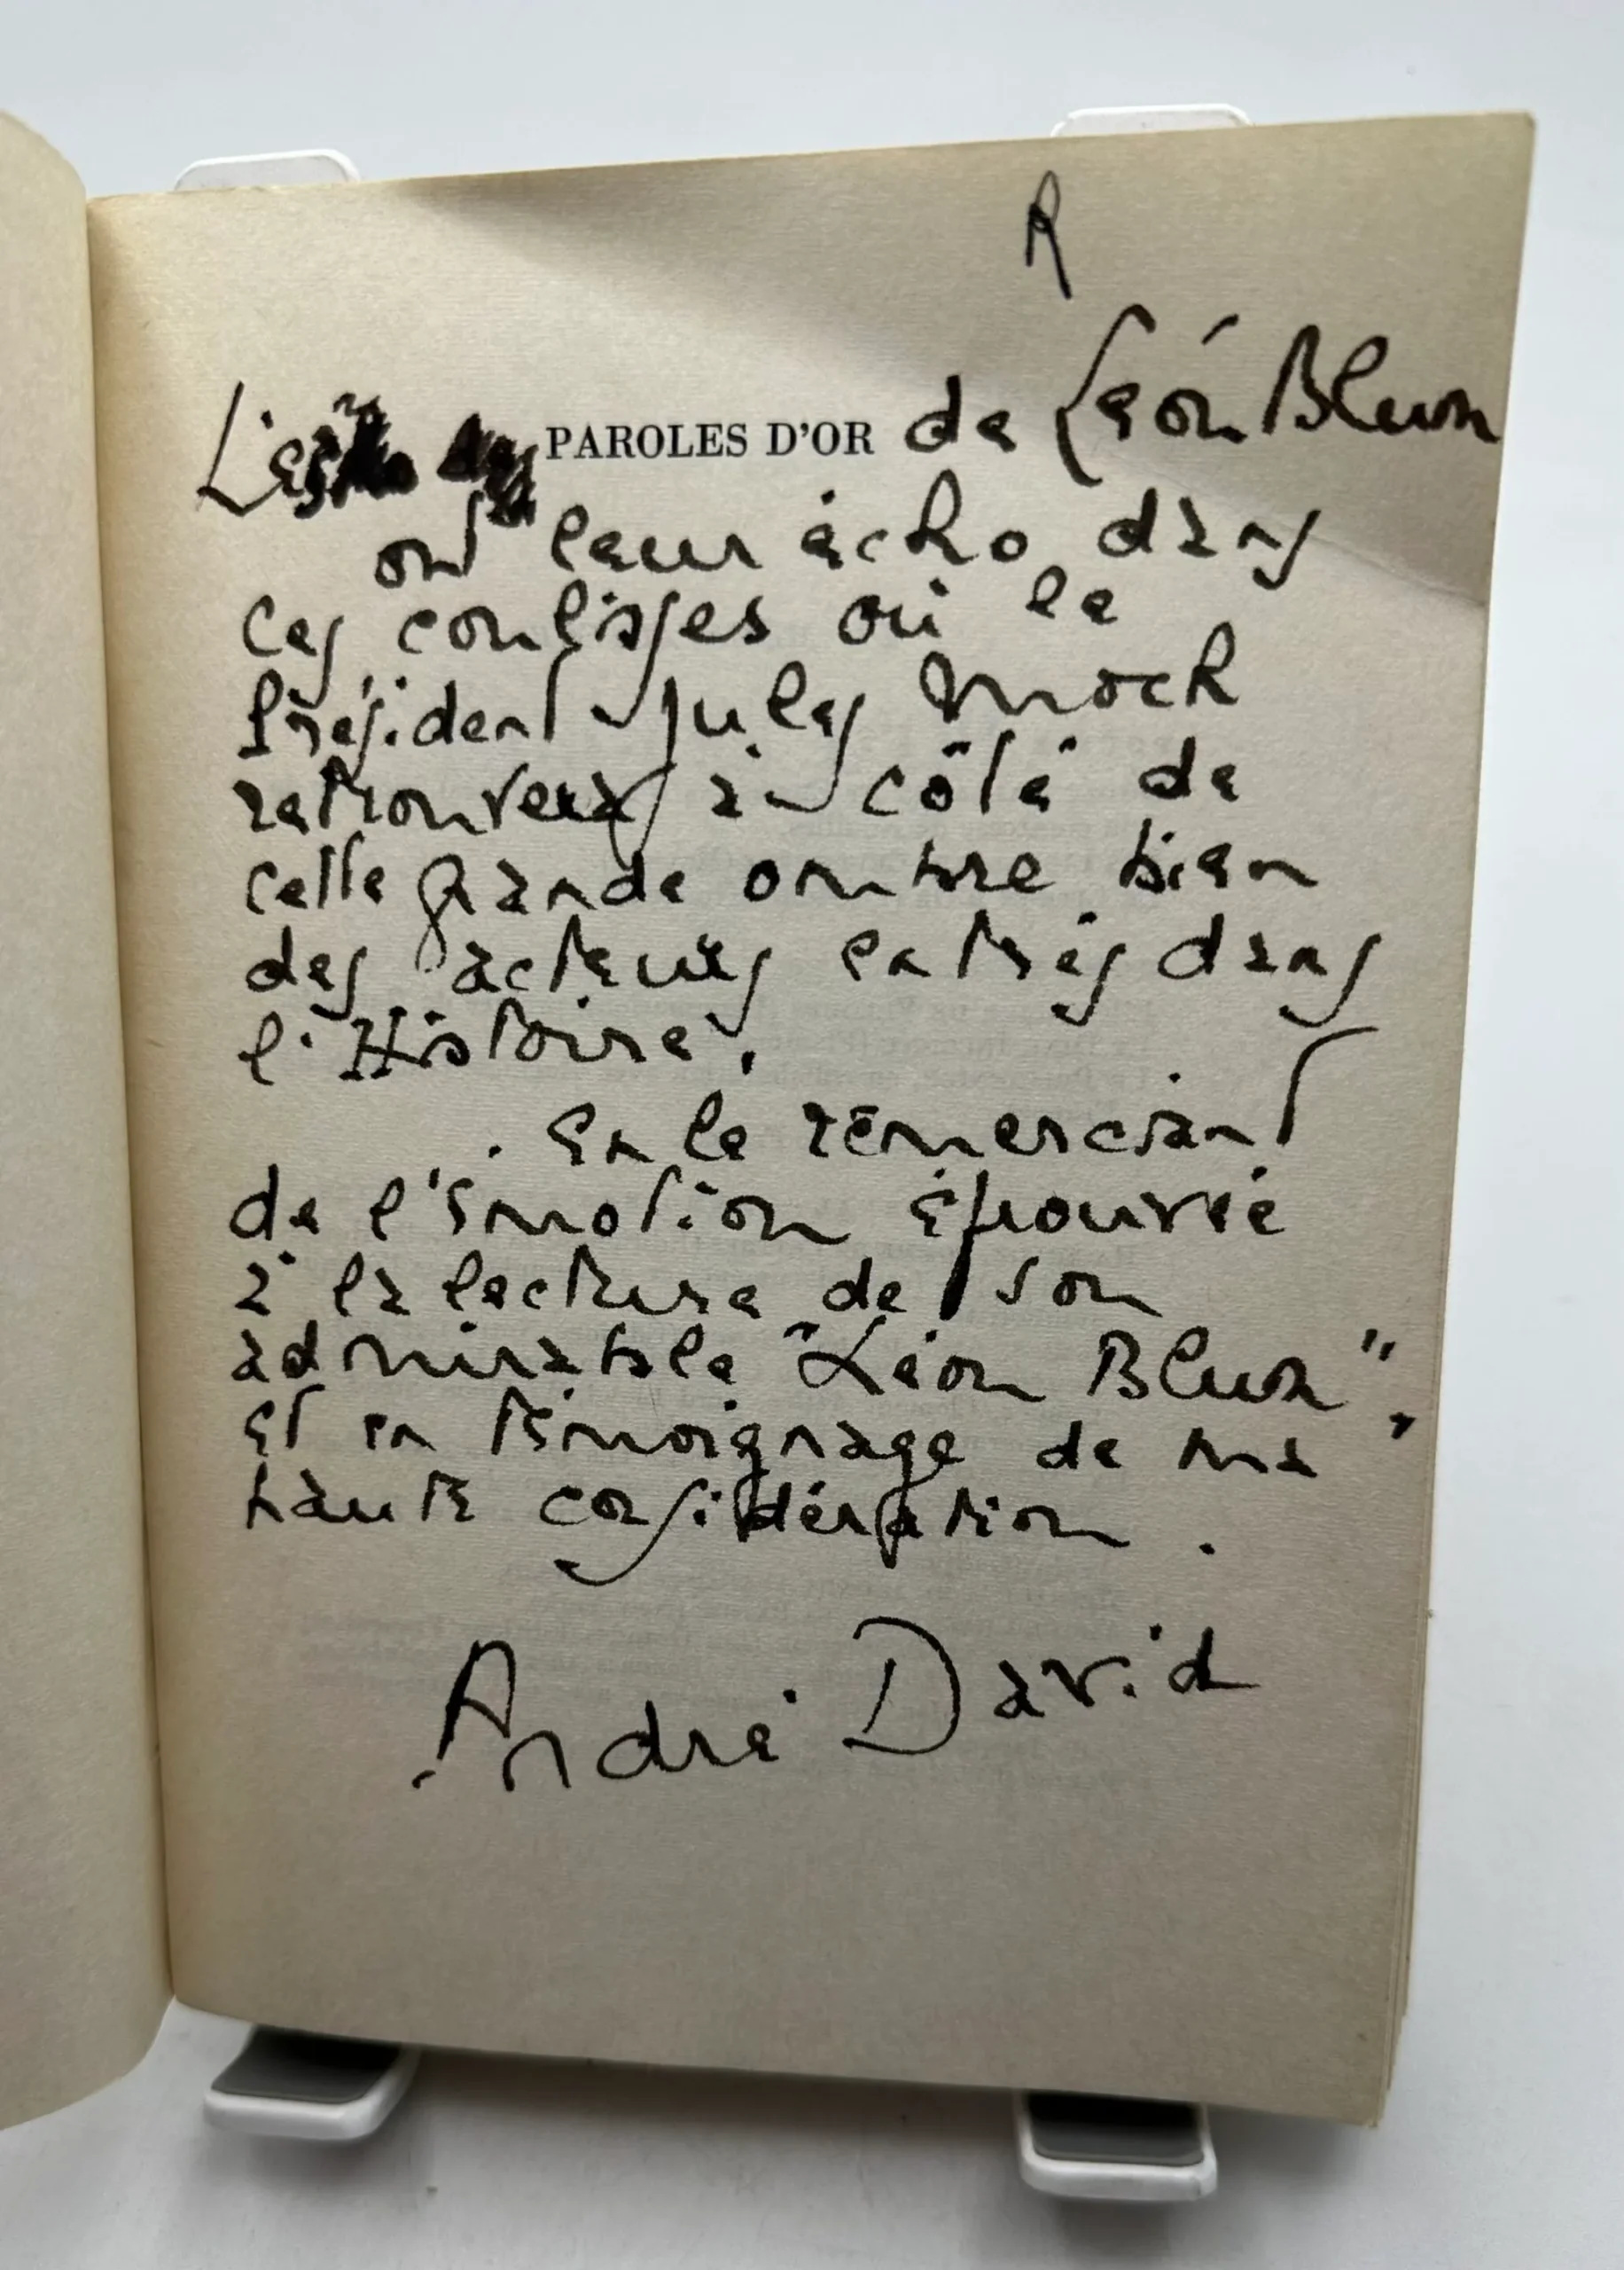 R
Les PAROLES D'OR de Léon Blum
ont leur écho dans
ces coulisses où le
Président Jules Moch
retrouvera à côté de
cette grande ombre bien
des acteurs entrés dans
l'Histoire.
En le remerciant
de l'émotion éprouvée
à la lecture de son
admirable "Léon Blum",
et en témoignage de ma
haute considération.
André David